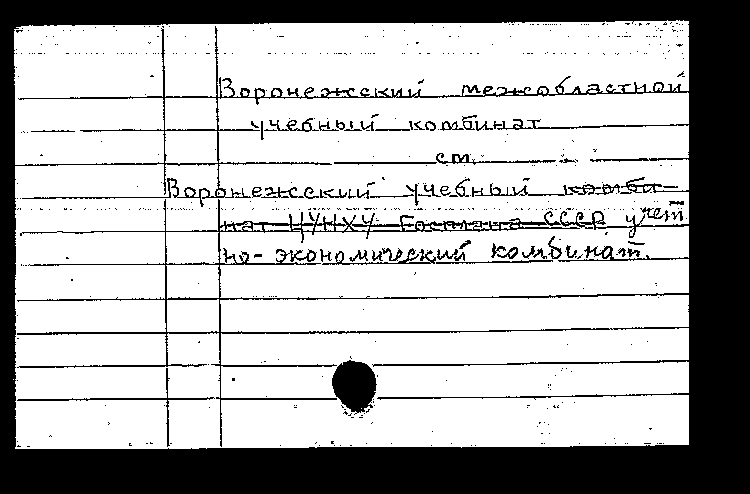 Воронежский межобластной
учебный комбинат
см.
Воронежский учебный комби-
нат ЦУНХУ Госплана СССР учет
но-экономический комбинат.